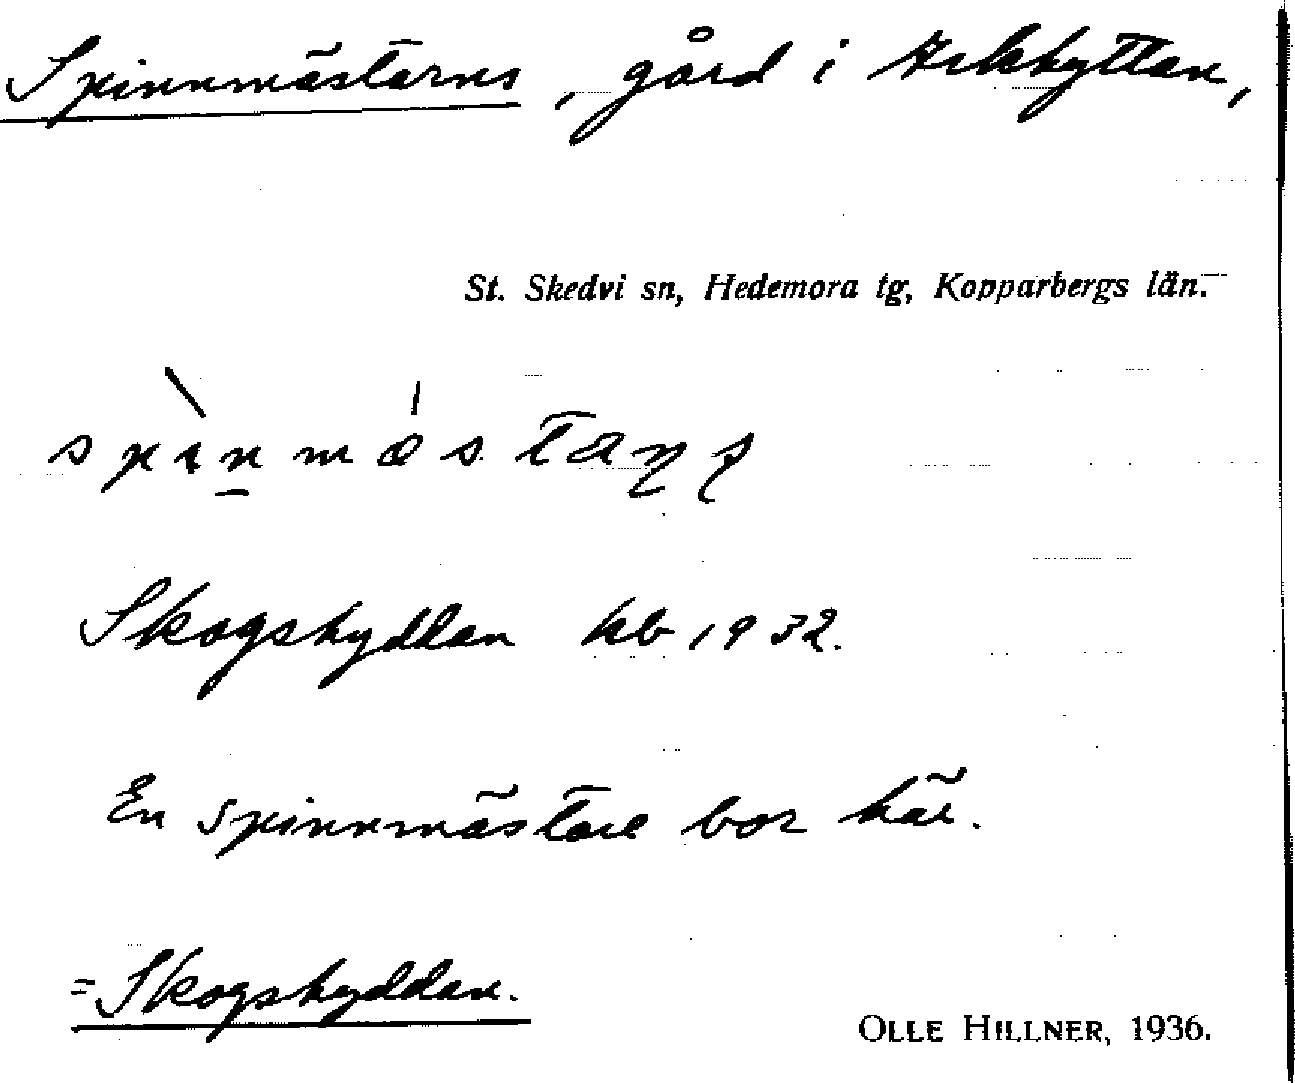 Spinnmästarns, gård i Arkhyttan,
St. Skedvi sn, Hedemora tg, Kopparbergs län.
Skogshyddan kb 1932.
En spinnmästare bor här.
=Skogshyddan.
OLLE HILLNER, 1936.